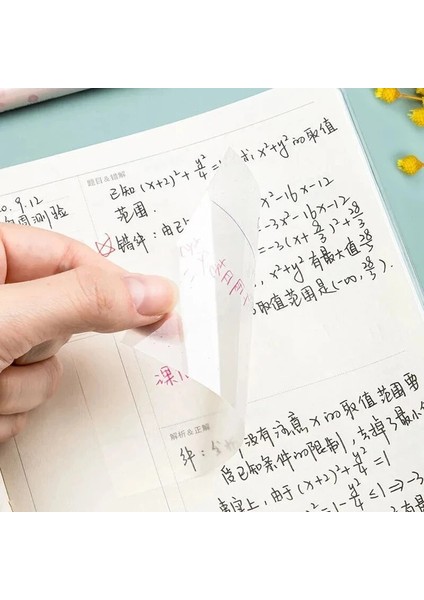 0.9.12
周测验
题目&错解
已知(x+2)²+y²/4=1 求x²+y²的取值
范围.
错解:由已 x²-16x-12
=-3x²-16x-12
=-3(x+8/3)²+28/3
x²+y²有最大值28/3
取值范围是(-∞,28/3).
课
解析&正解
解: 没有注意x的取值范围要
受已知条件的限制,丢掉了最小
事实上,由于(x+2)²+y²/4=1
=1-y²/4≤1⇒-3